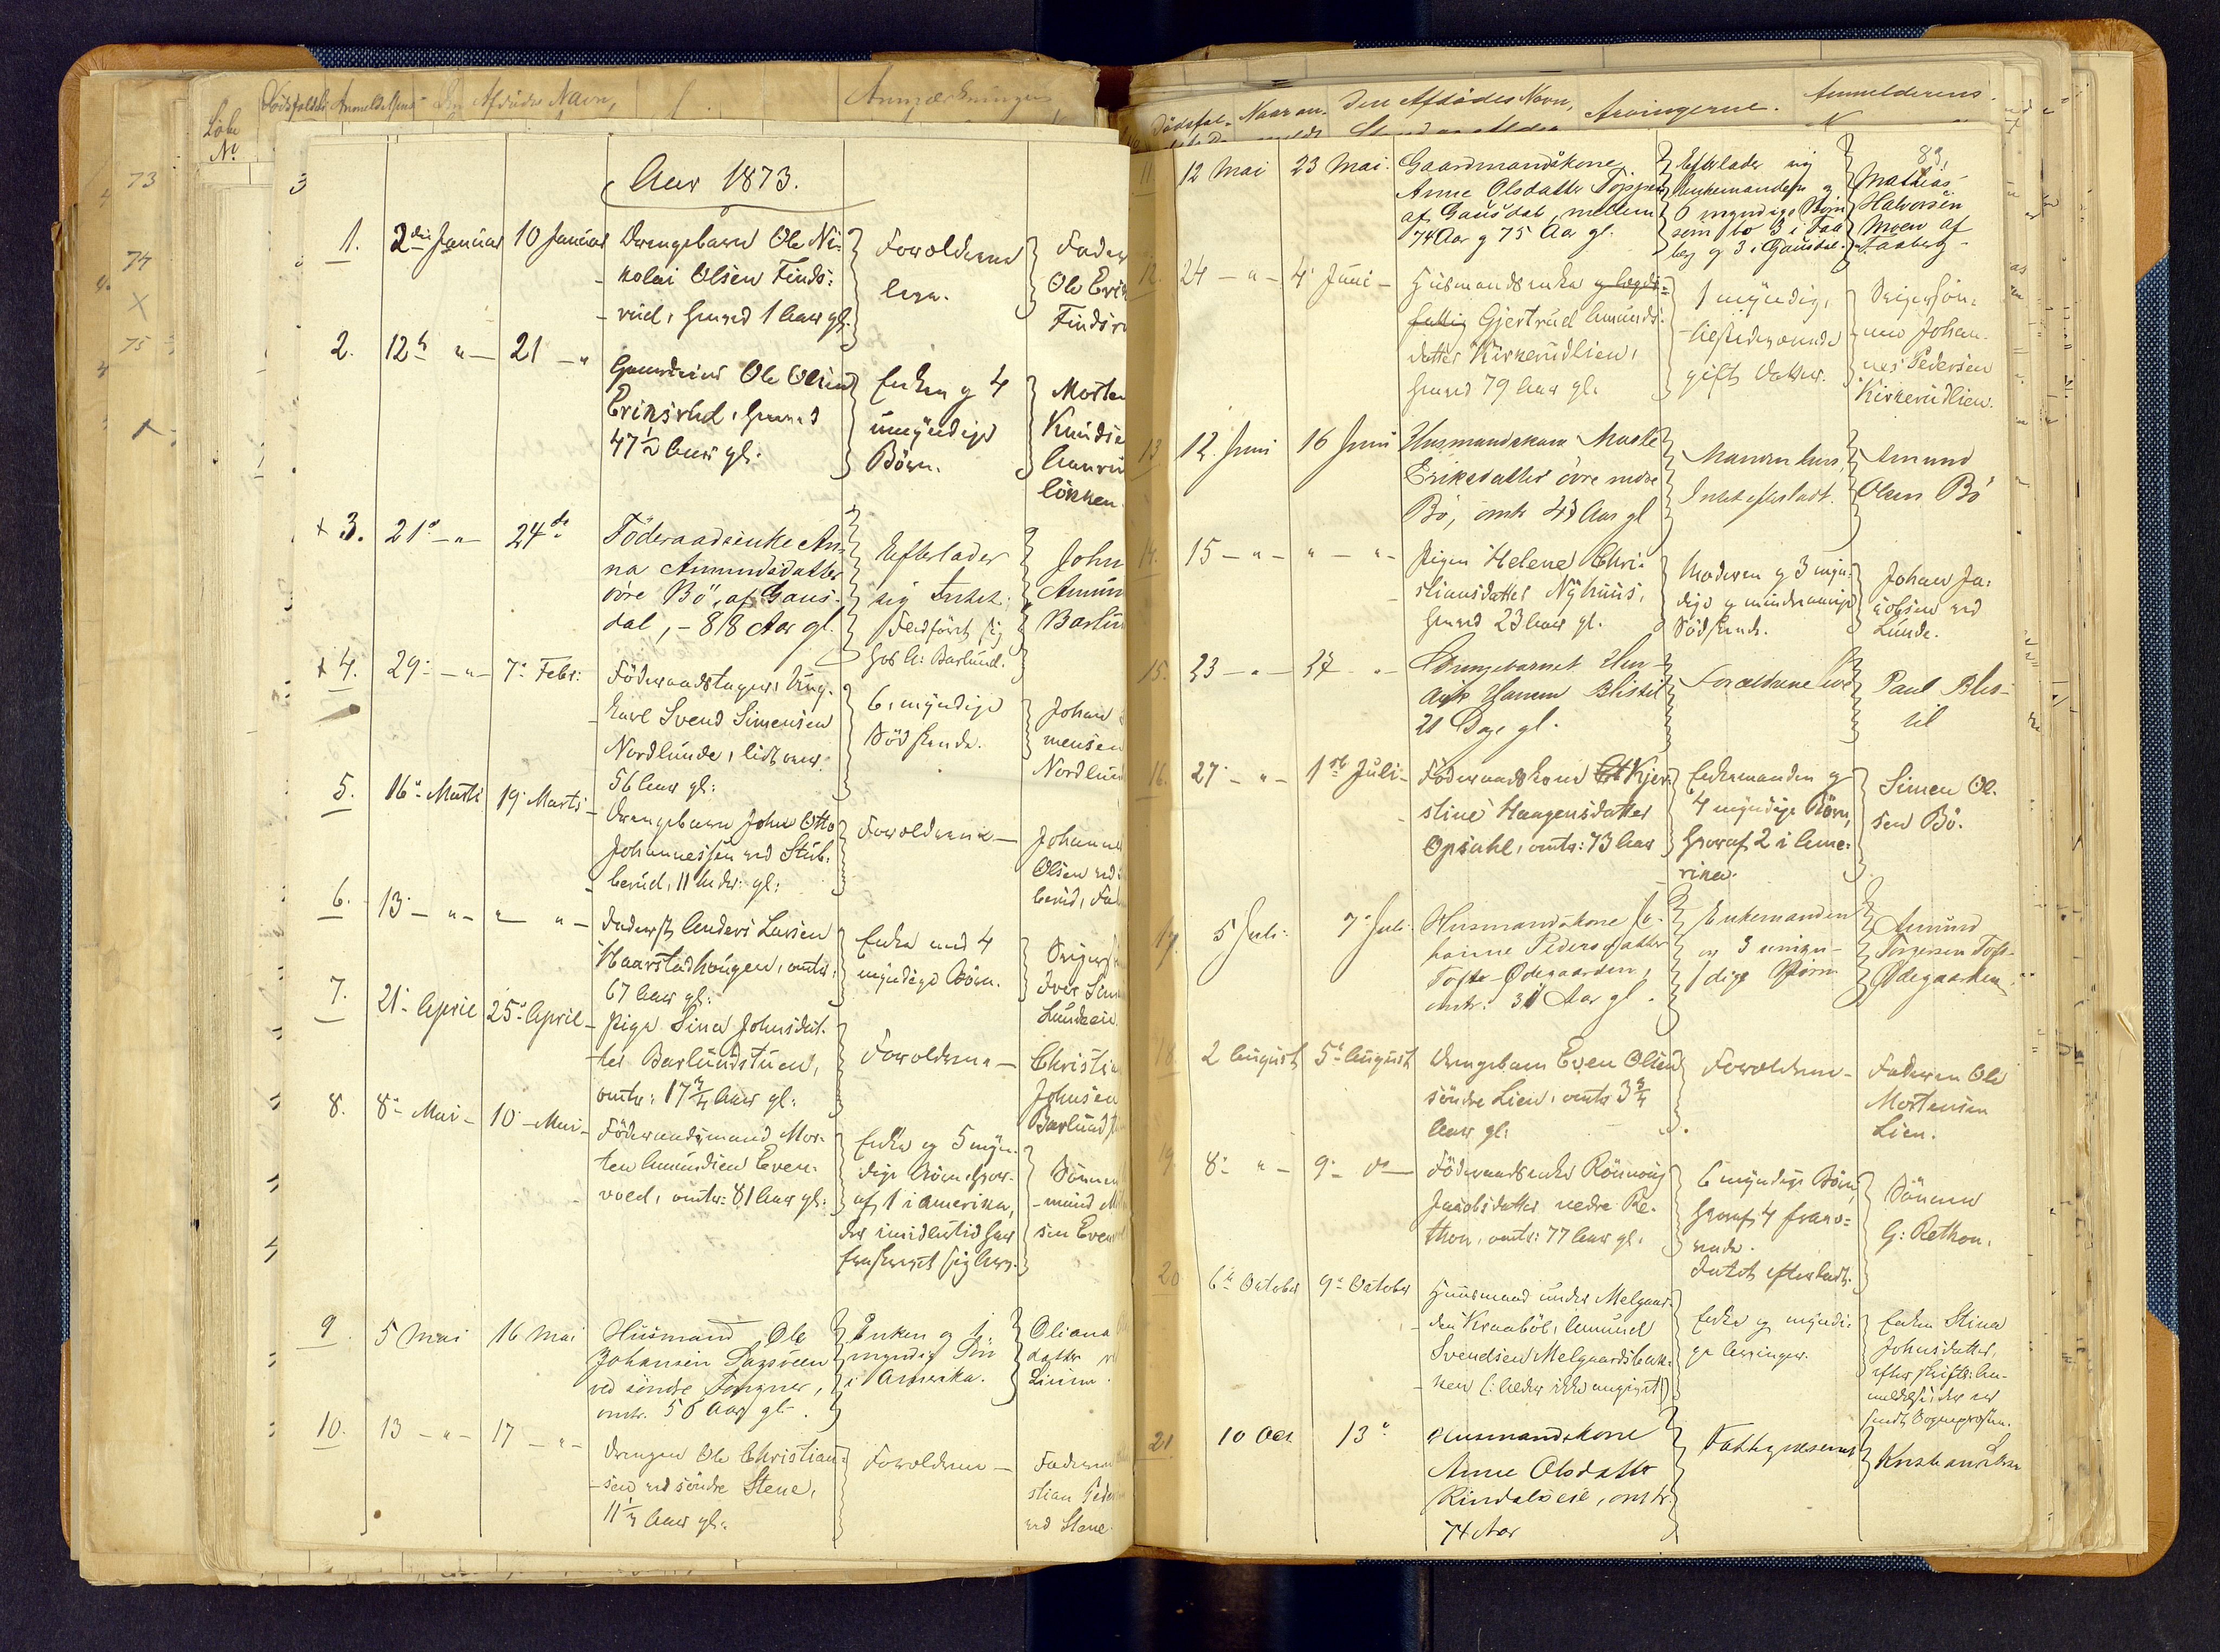 Löbe
Nº
Anmeldelsens
Den Afdödes Navn,
Anmærkninger
73
74
75
Aar 1873.
1.
2den Januar
10 Januar
Drengebarn Ole Ni-
kolai Olsen Finds-
rud, henved 1 Aar gl.
Forældrene
leva.
Fader
Ole Erik
Findsr
2.
12te " —
21 — "
Ole Olsen
Eriksrud, henved
47½ Aar gl.
Enken og 4
umyndige
Börn.
Morten
Knudse
lökken.
+ 3.
21de — " —
24de
Föderaadsenke An-
na Amundsdatter
övre Bö, af Gaus-
dal, - 88 Aar gl.
Efterlader
sig Intet.
hos A: Barlund.
John
Amun
Barlun
+ 4.
29 — " —
7de Febr:
Föderaadstager, Ung-
karl Svend Simensen
Nordlunde, lidt over
56 Aar gl:
6 myndige
Södskende.
Johan
mensen
Nordlun
5.
16de Marts
19 Marts
Drengebarn John Otto
Johannessen ved Stub-
berud, 11 Mdr: gl:
Forældrene —
Johanne
Olsen ved
berud, Fa
6.
13 — " —
" — " —
Anders Larsen
Haarstadhaugen, omtr.
67 Aar gl:
Enke med 4
myndige Börn.
Svigers
Iver Sim
7.
21 April
25de April
Pige Lina Johnsdat-
ter Barlundstuen,
omtr: 17¾ Aar gl:
Forældrene —
Christia
Johnsen
Barlund
8.
8de Mai —
10 Mai —
Föderaadsmand Mor-
ten Amundsen Even-
vold, omtr: 81 Aar gl:
Enke og 5 myn-
dige Börn, hvor-
af 1 i Amerika,
der imidlertid har
fraskrevet sig Arv.
Sönnen
mund M
sen Even
9.
5 Mai
16 Mai
Husmand Ole
Johansen
ved söndre Forgner,
omtr. 56 Aar gl.
Enken og 1
myndig Sön
i Amerika.
Oliana
datter
10.
13 — " —
17 — " —
Drengen Ole Christian-
sen ved söndre Stene,
11½ Aar gl:
Forældrene —
Faderen
stian Peder
ved Stene.
Dödsfal-
Naar an-
Den Afdödes Navn,
Arvingerne.
Anmelderens
83,
11
12 Mai
23 Mai.
Gaardmandskone
Anne Olsdatter
af Gausdal, mellem
74 Aar og 75 Aar gl.
Efterlader sig
Enkemanden og
6 myndige Börn
som bo 3 i Faa
berg og 3 i Gausdal.
Mathias
Halvorsen
Moen af
Faaberg.
12.
24 — " —
4de Juni —
Husmandsenke og lægds-
fattig Gjertrud Amunds-
datter Kirkerudlien,
henved 79 Aar gl.
1 myndig,
tilstedeværende
gift Datter.
Svigersön-
nen Johan-
nes Pedersen
Kirkerudlien.
13
12. Juni
16 Juni
Husmandskone Marte
Eriksdatter övre nordre
Bö, omtr 43 Aar gl
Manden
Intet efterladt.
Amund
Olsen Bö
14.
15 — " —
" — " —
Pigen Helene Chri-
stiansdatter Nyhuus,
henved 23 Aar gl.
Moderen og 3 myn-
dige og mindreaarige
Södskende.
Johan Ja-
cobsen ved
Lunde.
15.
23 — " —
27 — "
Drengebarnet
Hansen Blistil
21 Dage gl.
Forældrene
Paul Blis-
til
16.
27 — " —
1ste Juli —
Föderaadskone Kjer-
stine Haagensdatter
Opsahl, omtr: 73 Aar
Enkemanden og
4 myndige Börn,
hvoraf 2 i Ame-
rika.
Simen Ol-
sen Bö.
17.
5 Juli
7de Juli
Husmandskone Jo-
hanne Pedersdatter
Tofte-Ödegaarden,
omtr. 31 Aar gl.
Enkemanden
og 3 umyn-
dige Börn
Amund
Torgersen Tofte-
Ödegaarden
18.
2 August
5te August
Drengebarn Even Olsen
söndre Lien, omtr 3¾
Aar gl:
Forældrene —
Faderen Ole
Mortensen
Lien.
19.
8de " —
9de —
Föderaadsenke Rönnaug
Jacobsdatter nedre Re-
thon, omtr: 77 Aar gl.
6 myndige Börn,
hvoraf 4 fravæ-
rende.
Intet efterladt.
Sönnen
G: Rethon.
20.
6te October
9de October
Huusmand under Melgaar-
den Kraaböl, Amund
Svendsen Melgaardsbak-
ken (: Alder ikke angivet:)
Enke og myndi-
ge Arvinger.
Enken Stina
Johnsdatter,
efter skriftl: An-
meldelse, der er
sendt Sognepresten.
21.
10 Oct
13de
Husmandskone
Anne Olsdatter
Rindalseie, omtr.
74 Aar
Fattigvæsenet